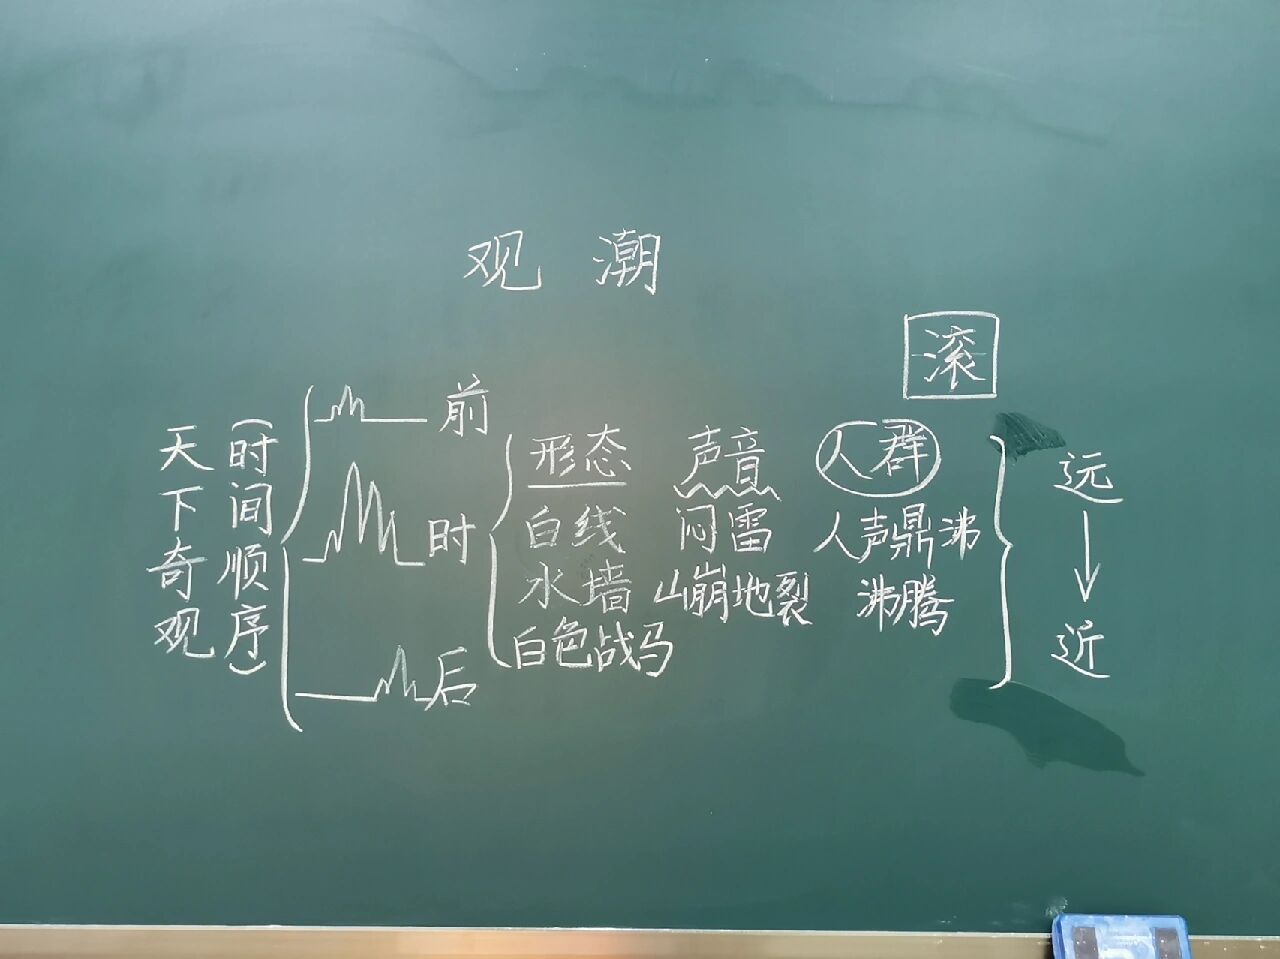 观 潮
滚
天下奇观
(时间顺序)
前
时
后
形态 声音 人群
白线 闷雷 人声鼎沸
水墙 山崩地裂 沸腾
白色战马
远
近